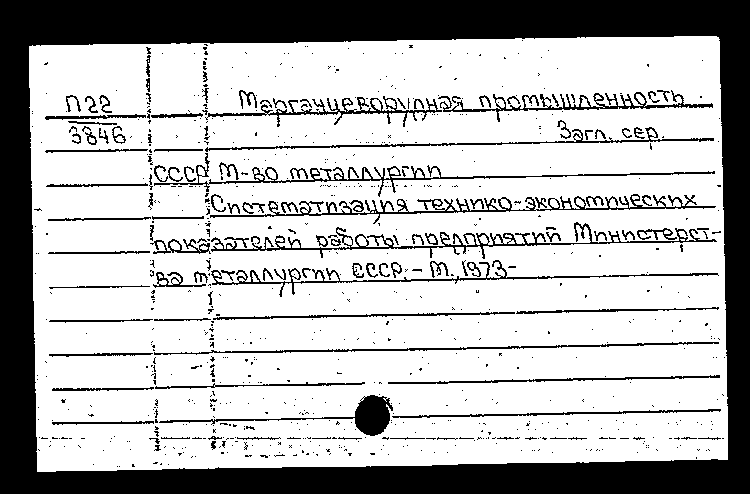 П22
3846
Марганцеворудная промышленность.
Загл. сер.
СССР М-во металлургии
Систематизация технико-экономических
показателей работы предприятий Министерст-
ва металлургии СССР. - М., 1973-